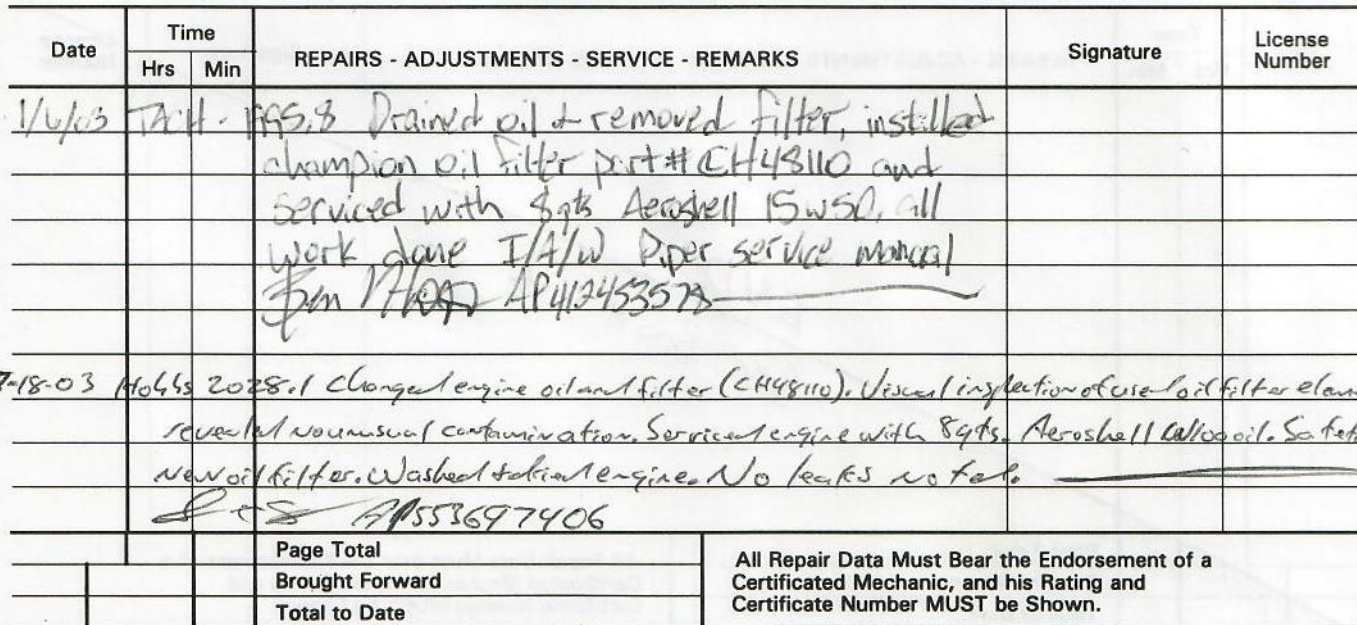 Date Time REPAIRS - ADJUSTMENTS - SERVICE - REMARKS Signature License Number
Hrs Min
1/6/03 TACH - Drained oil + removed filter, installed
champion oil filter part# CH48110 and
serviced with 8qts Aeroshell 15w50, all
work done I/A/W Piper service manual
AP412453578
7-18-03 Hobbs 2028.1 Changed engine oil and filter (CH48110). Visual inspection of used oil filter elem
revealed no unusual contamination. Serviced engine with 8qts. Aeroshell oil. Safet
New oil filter. Washed & dried engine. No leaks noted.
AP553697406
Page Total
Brought Forward
Total to Date
All Repair Data Must Bear the Endorsement of a
Certificated Mechanic, and his Rating and
Certificate Number MUST be Shown.